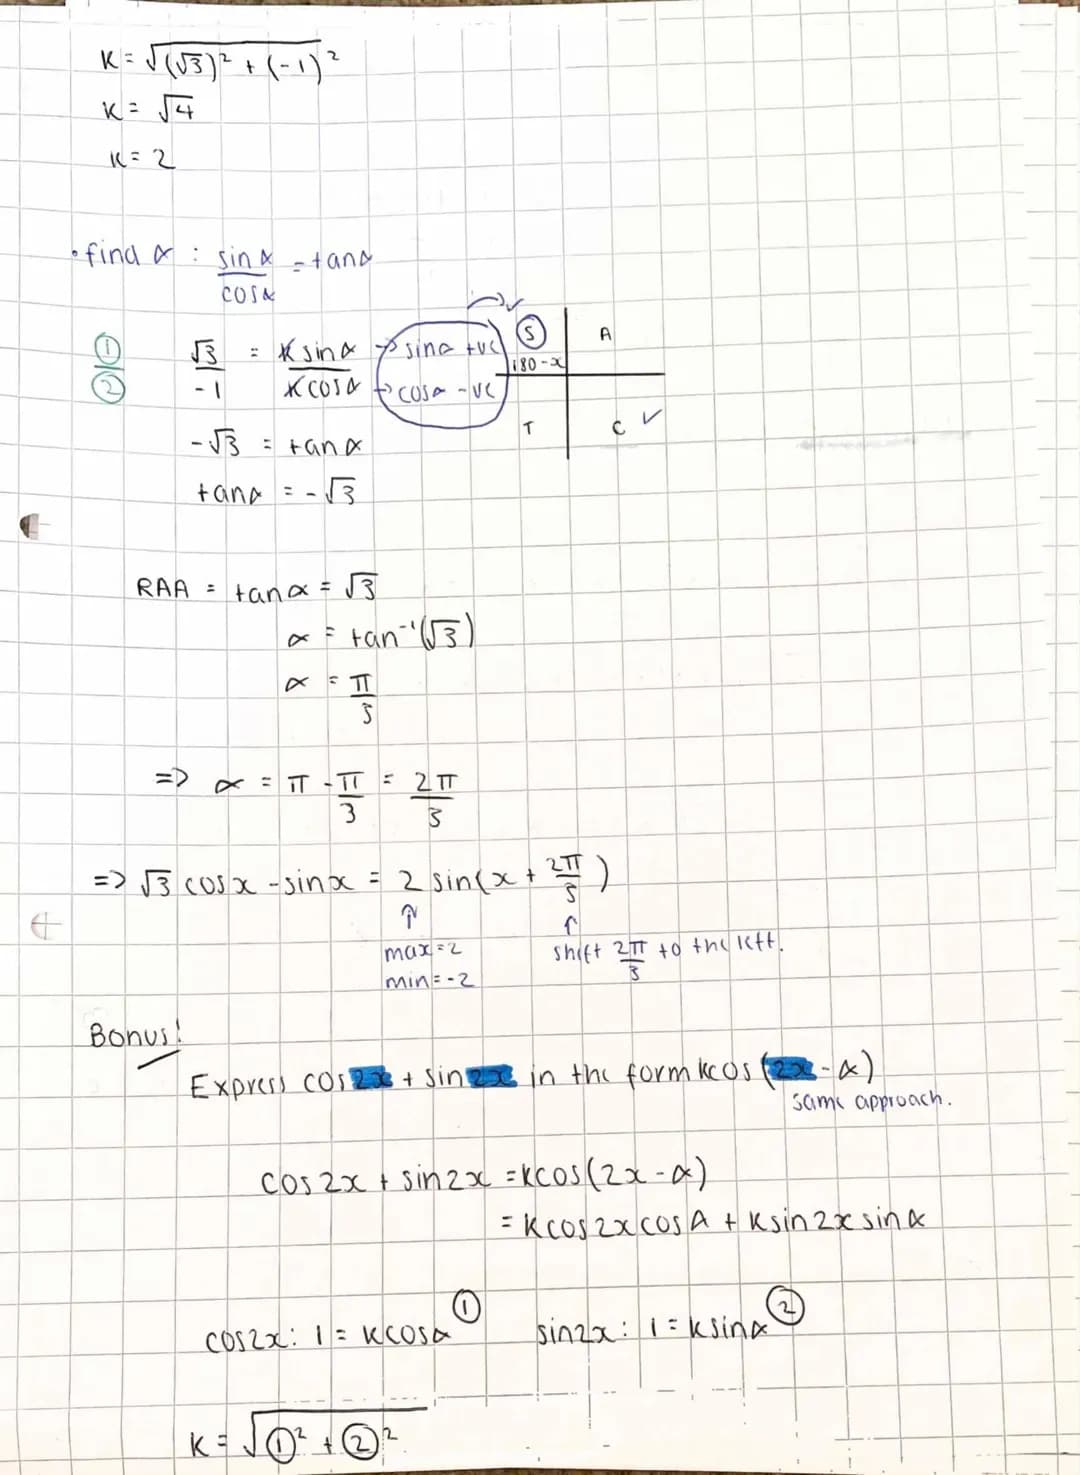 K = √(√3)² + (-1)²
K = √4
K = 2
• find α : sin α / cos α = tan α
① / ② √3 / -1 = K sin α / K cos α → sin α +ve → cos α -ve
S A
180 - x
T C ✓
-√3 = tan α
tan α = -√3
RAA = tan α = √3
α = tan⁻¹(√3)
α = π/3
=> α = π - π/3 = 2π/3
=> √3 cos x - sin x = 2 sin(x + 2π/3)
↑ ↑
max = 2 shift 2π/3 to the left.
min = -2
Bonus!
Express cos 2x + sin 2x in the form kcos (2x - α)
same approach.
cos 2x + sin 2x = kcos(2x - α)
= K cos 2x cos A + K sin 2x sin α
cos 2x: 1 = K cos α ① sin 2x: 1 = K sin α ②
K = √①² + ②²